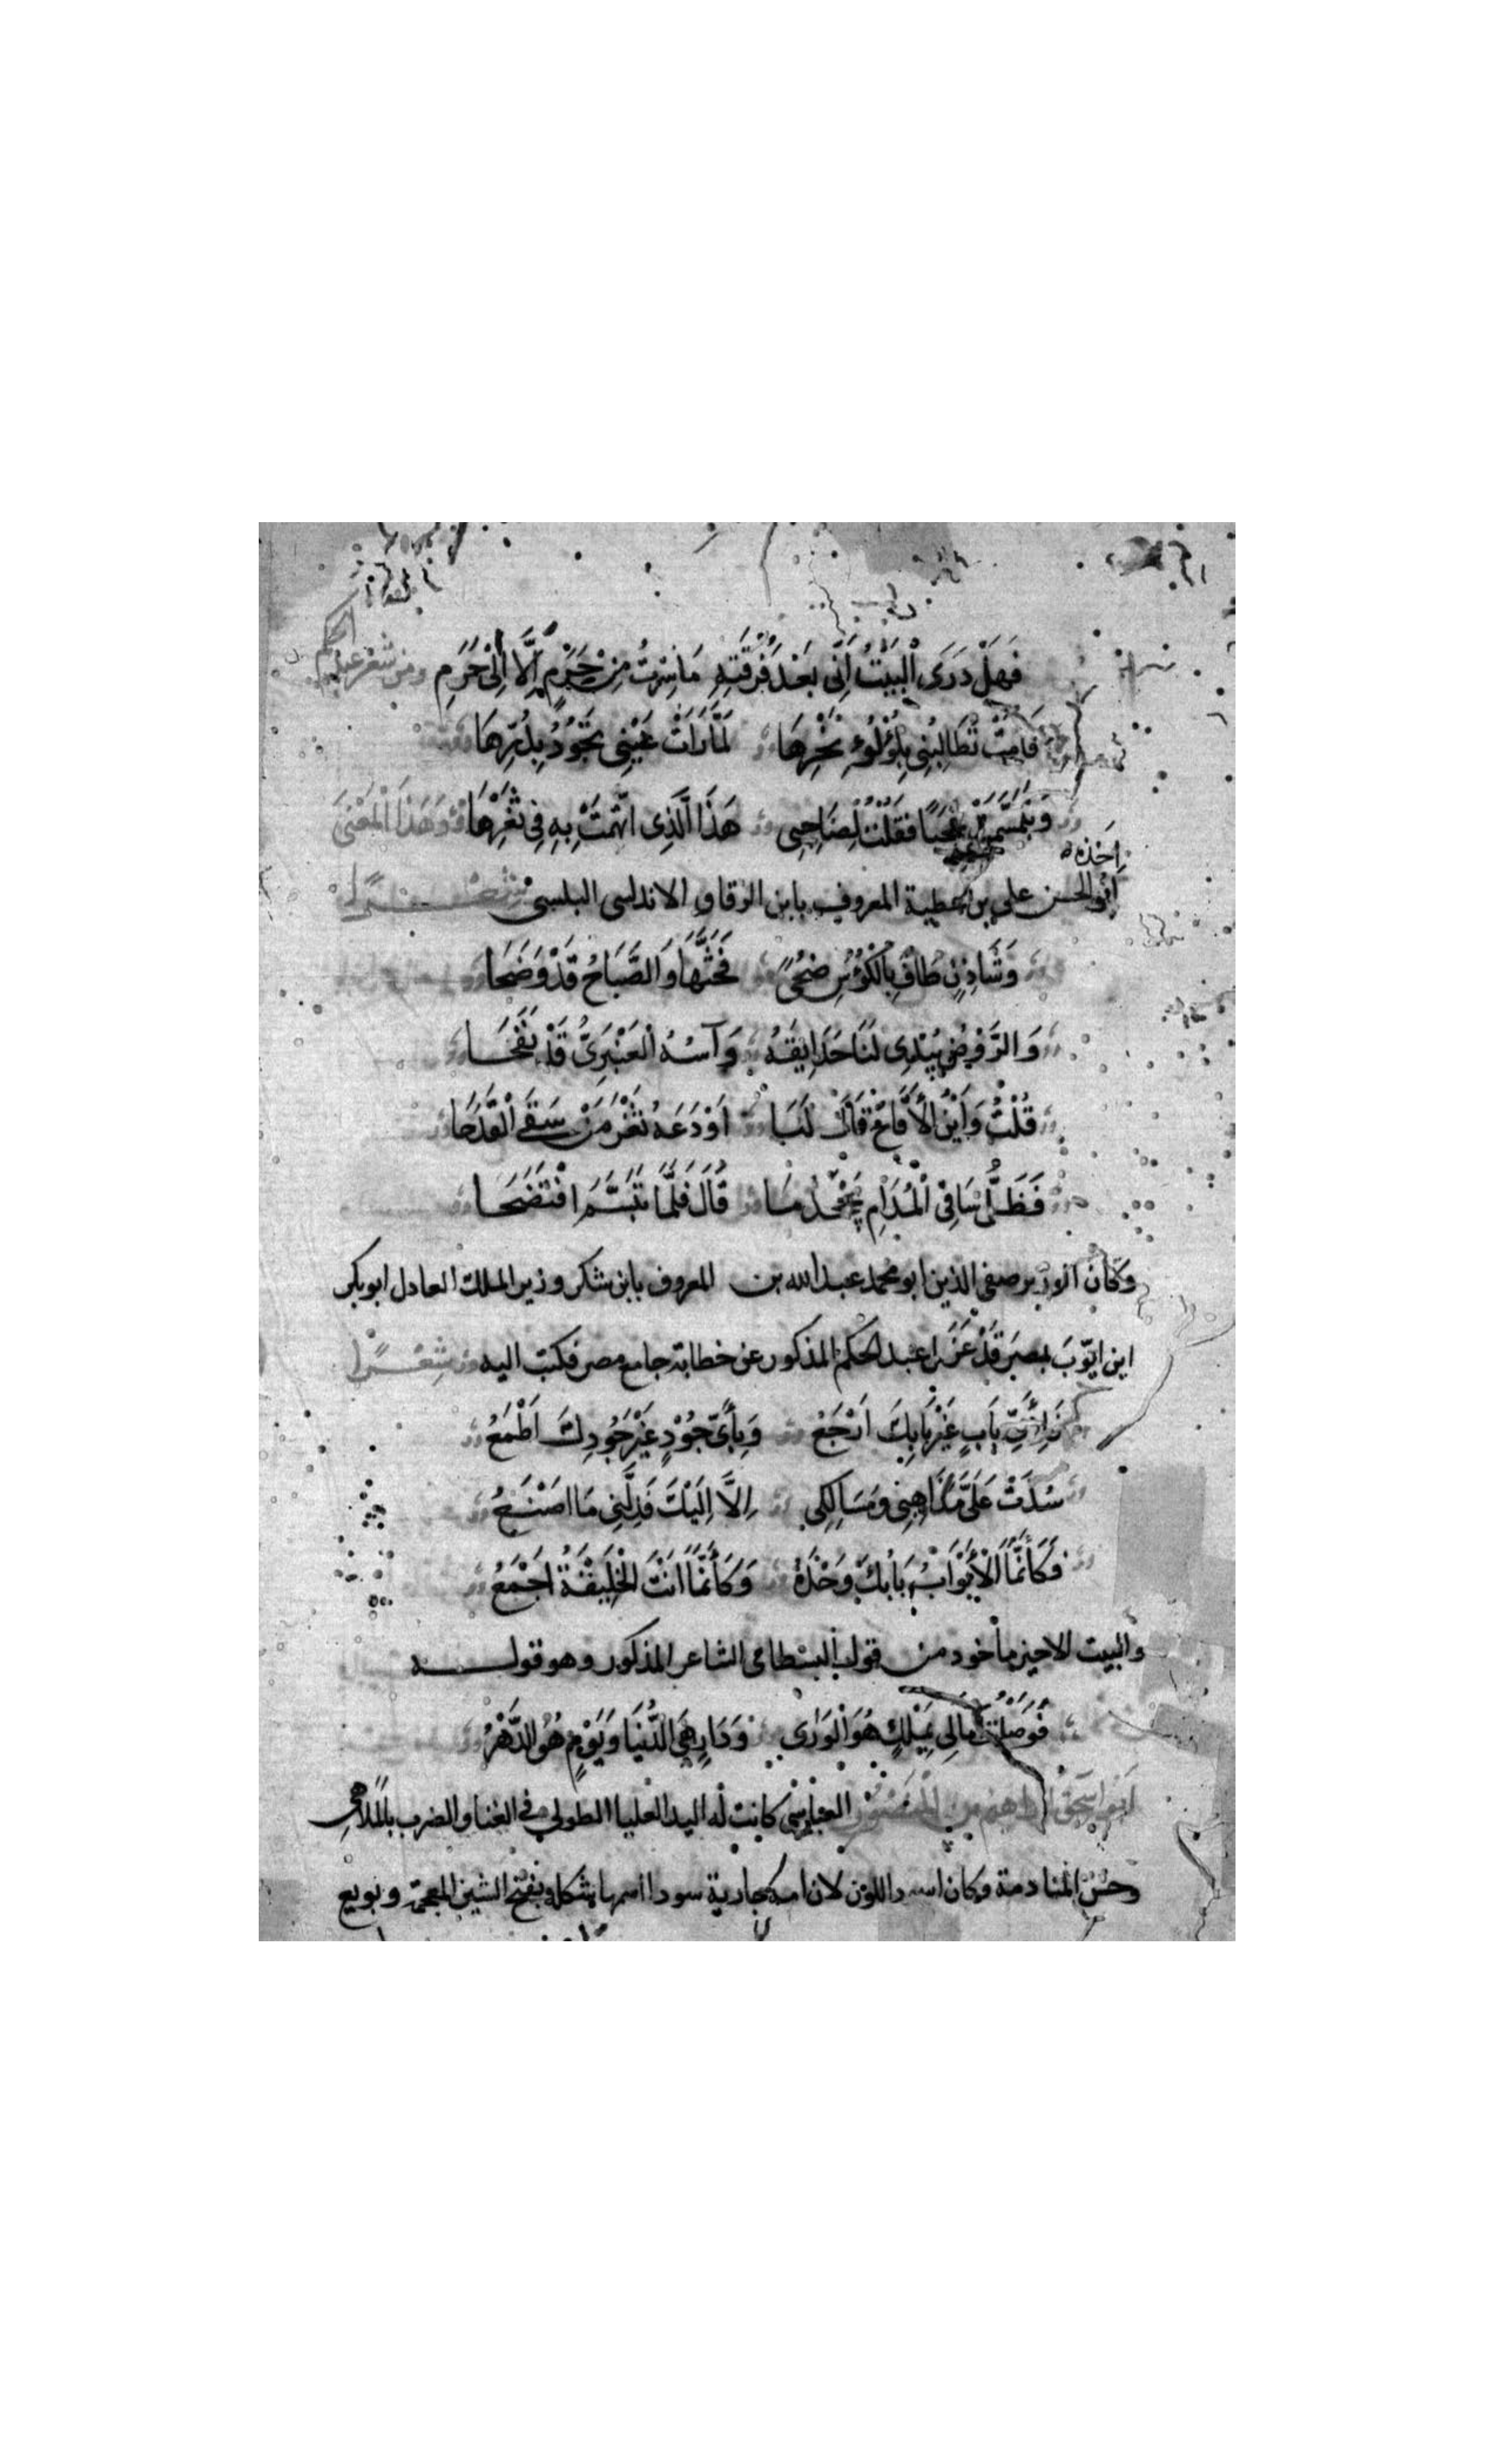 فَهَلْ دَرَى الْبَيْتُ اَنِّى بَعْدَ فُرْقَتِهِ مَا سِرْتُ مِنْ حَرَمٍ اِلَّا اِلَى حَرَمِ ومن شعر عبد الحكم
قامت تُطَالِبُنِى بِلُؤْلُؤِ نَحْرِهَا لَمَّا رَاَتْ عَيْنِى تَجُوْدُ بِدُرِّهَا
وَتَبَسَّمَتْ عجبًا فَقُلْتُ لِصَاحِبِى هَذَا الَّذِى اتُّهِمَتْ بِهِ فِى ثَغْرِهَا وَهَذَا الْمَعْنَى
اَخَذَه
اَبُو الحسن على بن عطية المعروف بابن الزقاق الاندلسى البلنسى شعـــرًا
وَشَادِنٍ طَافَ بِالْكُؤُسِ ضُحًى فَحَثَّهَا وَالصَّبَاحُ قَدْ وَضَحَا
وَالرَّوْضُ يُبْدِى لَنَا حَدَايِقَهُ وَآسُهُ الْعَنْبَرِىُّ قَدْ نَفَحَــا
قُلْتُ وَاَيْنَ الْاَقَاحُ قَالَ لَنَا اَوْدَعْتُهُ ثَغْرَ مَنْ سَقَى الْقَدَحَا
فَظَلَّ سَاقِى الْمُدَامِ يَجْحَدُ مَا قَالَ فَلَمَّا تَبَسَّمَ افْتَضَحَــا
وكان الوزير صفى الدين ابو محمد عبد الله بن المعروف بابن شكر وزير الملك العادل ابو بكر
ابن ايّوبَ بمصرَ قَدْ عَزَلَ عبد الحكم المذكور عن خطابة جامع مصر فكتب اليه شِعْــرًا
بَابٍ غَيْرِ بَابِكَ اَرْجَعُ وَبِاَىِّ جُوْدٍ غَيْرِ جُودِكَ اَطْمَعُ
سُدَّتْ عَلَىَّ مَذَاهِبِى وَمَسَالِكِى اِلَّا اِلَيْكَ فَدِلَّنِى مَا اصْنَــعُ
فَكَأَنَّمَا الْأَبْوَابُ بَابُكَ وَحْدَهُ وَكَأَنَّمَا اَنْتَ الْخَلِيْقَةُ اَجْمَعُ
والبيت الاخير مأخوذ من قول البسطامى الشاعر المذكور وهو قولــــه
آمالِى بِمَلْكٍ هُوَ الْوَرَى وَدَارٍ هِىَ الدُّنْيَا وَيَوْمٍ هُوَ الدَّهْرُ
اَبو اِسحقَ ابراهيم بن العباسى كانت له اليد العليا الطولى فى الغنا والضرب بالملاهى
وحُسْنِ المنادمة وكان اسود اللون لان امه جارية سودا اسمها شكله بفتح الشين المعجمة وبويع